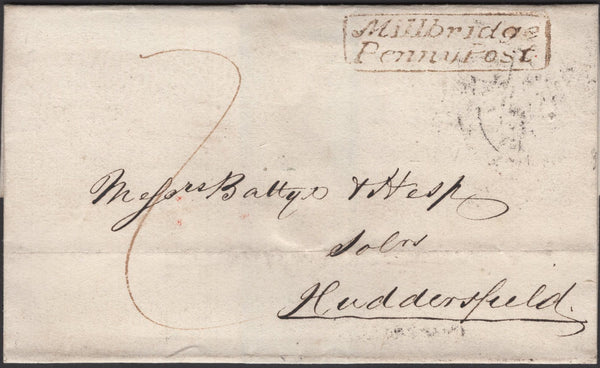 Millbridge
Penny Post
7
Messrs Battye & Hesp
Solrs
Huddersfield.